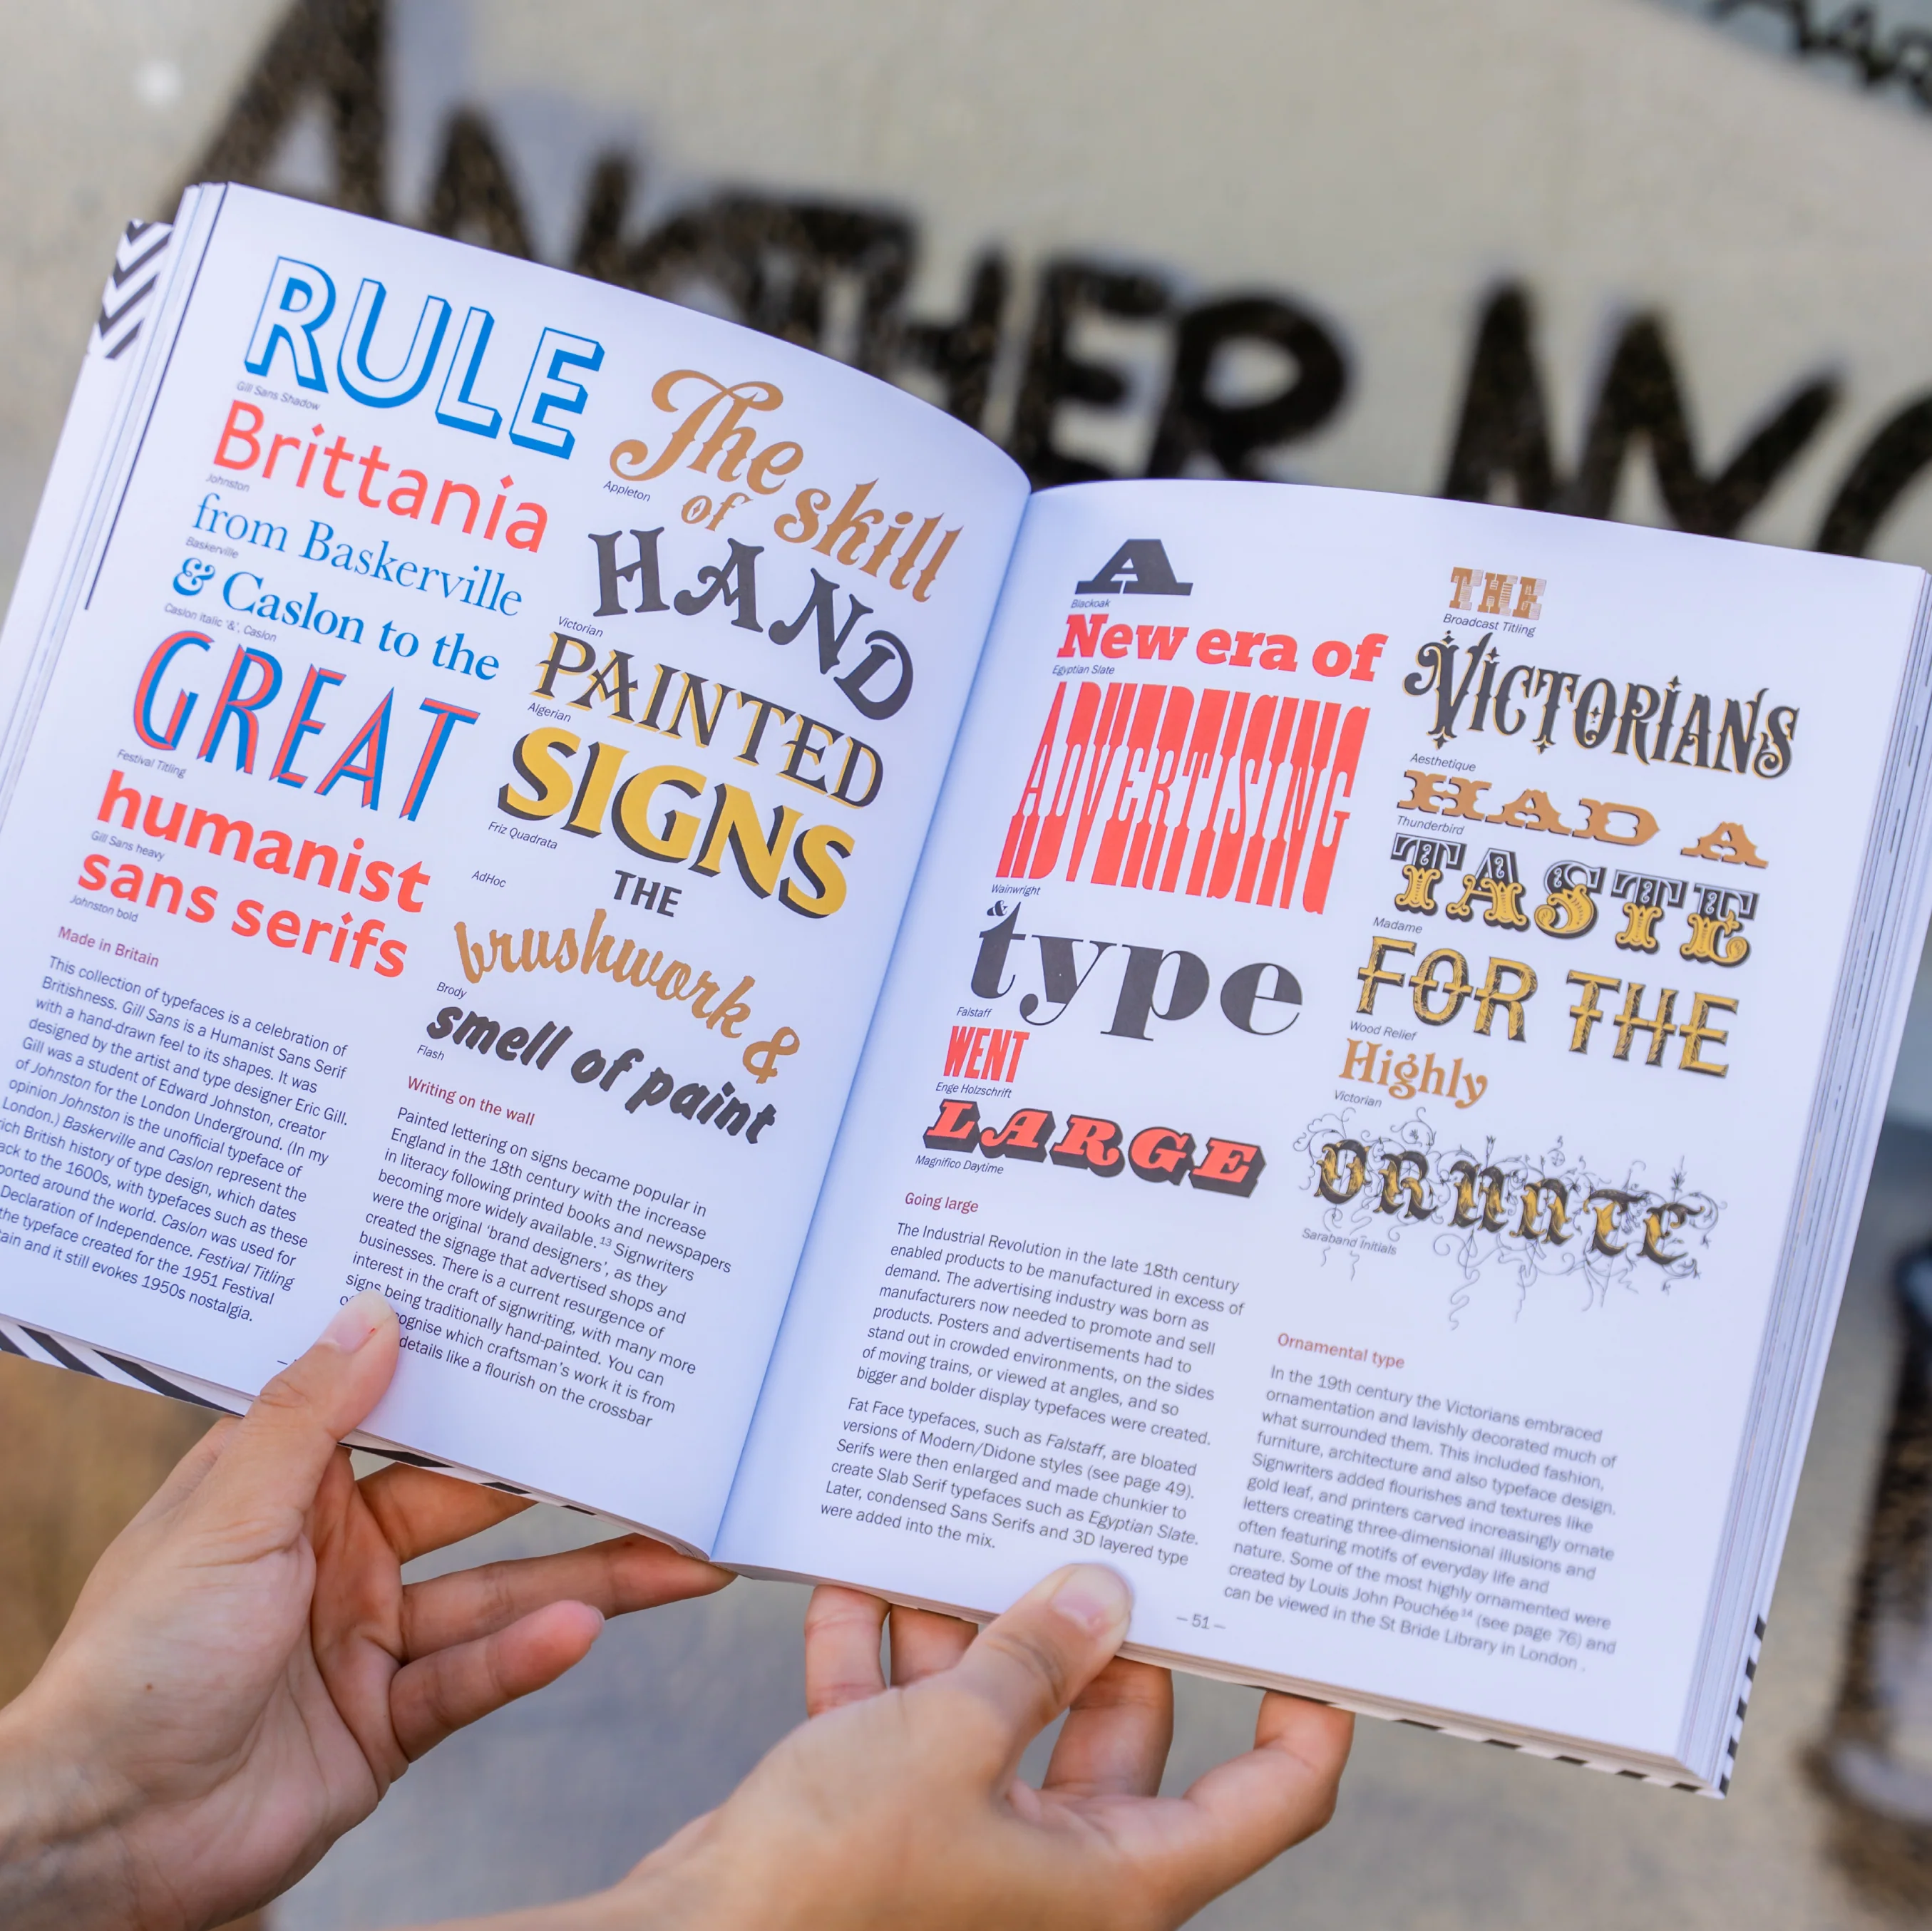 ANOTHER
RULE
Gill Sans Shadow
Brittania
Johnston
from Baskerville
Baskerville
& Caslon to the
Caslon italic '&', Caslon
GREAT
Festival Titling
humanist
Gill Sans heavy
sans serifs
Johnston bold
Made in Britain
This collection of typefaces is a celebration of
Britishness. Gill Sans is a Humanist Sans Serif
with a hand-drawn feel to its shapes. It was
designed by the artist and type designer Eric Gill.
Gill was a student of Edward Johnston, creator
of Johnston for the London Underground. (In my
opinion Johnston is the unofficial typeface of
London.) Baskerville and Caslon represent the
British history of type design, which dates
to the 1600s, with typefaces such as these
around the world. Caslon was used for
Declaration of Independence. Festival Titling
the typeface created for the 1951 Festival
and it still evokes 1950s nostalgia.
The skill
Appleton
of
HAND
Victorian
PAINTED
Algerian
SIGNS
Friz Quadrata
THE
AdHoc
brushwork &
Brody
smell of paint
Flash
Writing on the wall
Painted lettering on signs became popular in
England in the 18th century with the increase
in literacy following printed books and newspapers
becoming more widely available.13 Signwriters
were the original 'brand designers', as they
created the signage that advertised shops and
businesses. There is a current resurgence of
interest in the craft of signwriting, with many more
signs being traditionally hand-painted. You can
which craftsman's work it is from
details like a flourish on the crossbar
A
Blackoak
New era of
Egyptian Slate
ADVERTISING
Wainwright
&
type
Falstaff
WENT
Enge Holzschrift
LARGE
Magnifico Daytime
Going large
The Industrial Revolution in the late 18th century
enabled products to be manufactured in excess of
demand. The advertising industry was born as
manufacturers now needed to promote and sell
products. Posters and advertisements had to
stand out in crowded environments, on the sides
of moving trains, or viewed at angles, and so
bigger and bolder display typefaces were created.
Fat Face typefaces, such as Falstaff, are bloated
versions of Modern/Didone styles (see page 49).
Serifs were then enlarged and made chunkier to
create Slab Serif typefaces such as Egyptian Slate.
Later, condensed Sans Serifs and 3D layered type
were added into the mix.
THE
Broadcast Titling
VICTORIANS
Aesthetique
HAD A
Thunderbird
TASTE
Madame
FOR THE
Wood Relief
Highly
Victorian
ORNATE
Saraband Initials
Ornamental type
In the 19th century the Victorians embraced
ornamentation and lavishly decorated much of
what surrounded them. This included fashion,
furniture, architecture and also typeface design.
Signwriters added flourishes and textures like
gold leaf, and printers carved increasingly ornate
letters creating three-dimensional illusions and
often featuring motifs of everyday life and
nature. Some of the most highly ornamented were
created by Louis John Pouchée14 (see page 76) and
can be viewed in the St Bride Library in London .
— 51 —